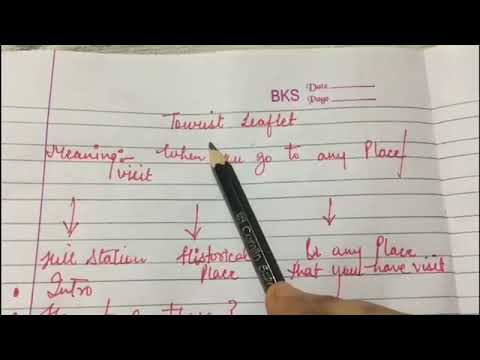 BKS Date
Page
Tourist Leaflet
Meaning:- When you go to any Place/
visit
Hill Station Historical Or any Place
Place that you have visit
• Intro